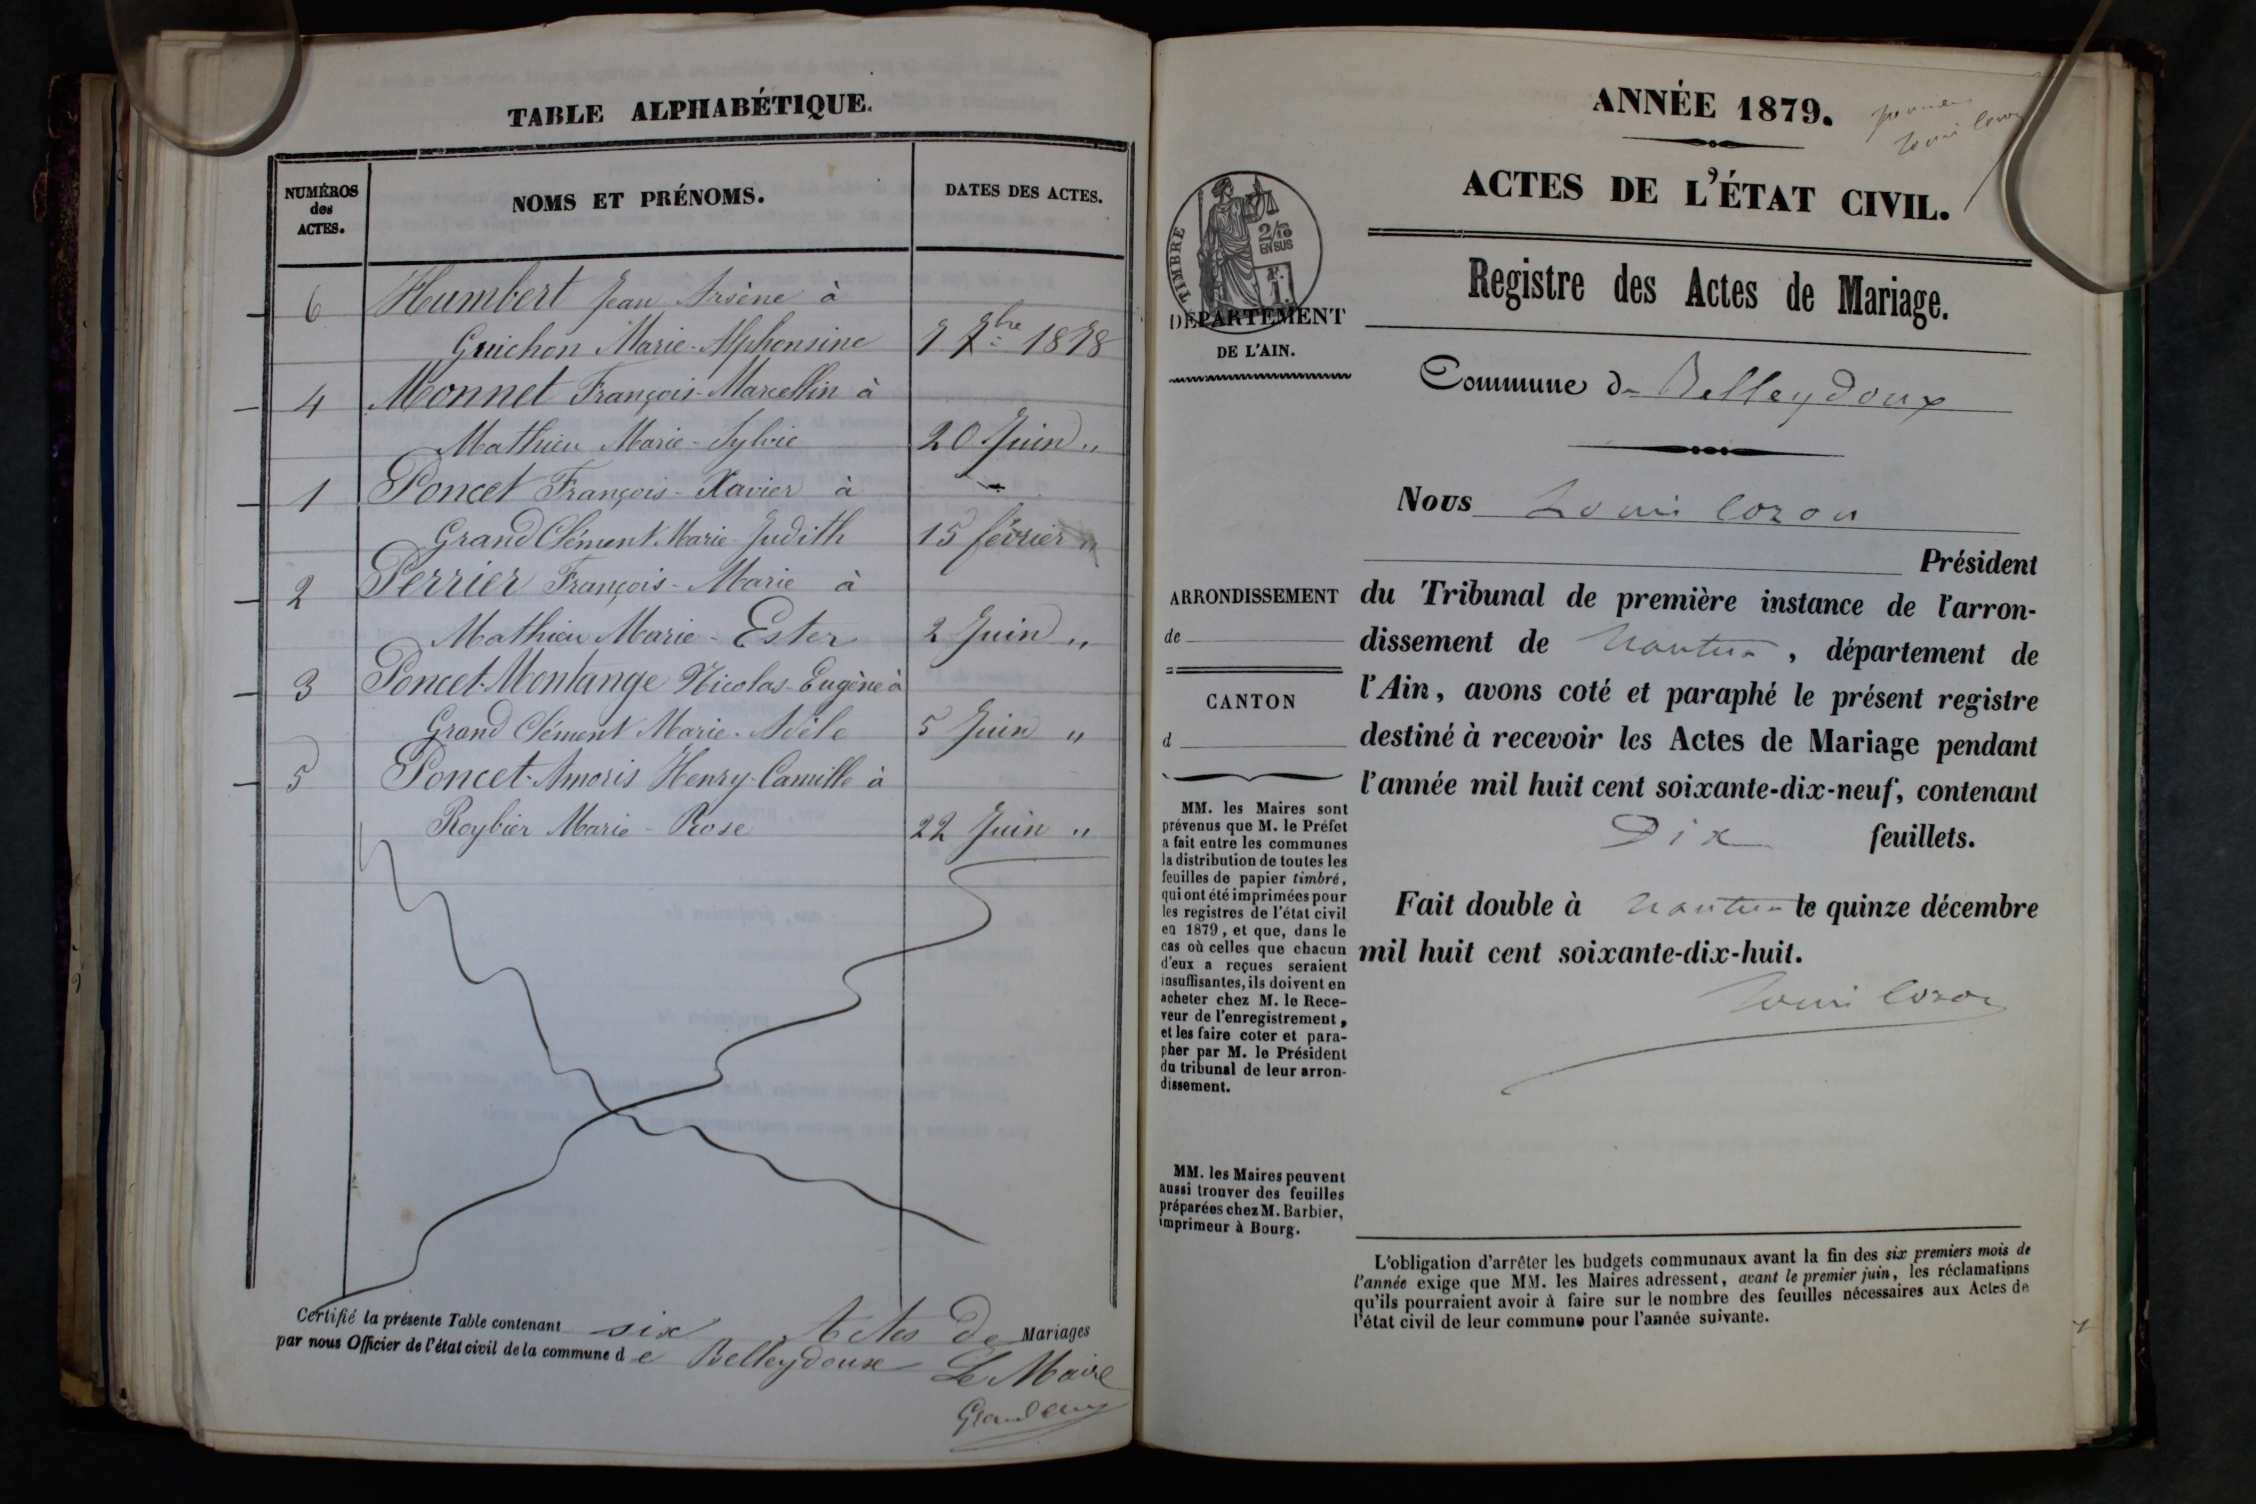 TABLE ALPHABÉTIQUE.
NUMÉROS
des
ACTES.
NOMS ET PRÉNOMS.
DATES DES ACTES.
6 Humbert Jean Arsène à
Guichon Marie-Alphonsine 7 7bre 1878
4 Monnet François-Marcellin à
Mathieu Marie-Sylvie 20 Juin "
1 Poncet François-Xavier à
Grand Clément Marie Judith 15 février "
2 Perrier François-Marie à
Mathieu Marie-Ester 2 Juin "
3 Poncet-Montange Nicolas-Eugène à
Grand Clément Marie-Adèle 5 Juin "
5 Poncet-Amoris Henry-Camille à
Reybier Marie-Rose 22 Juin "
Certifié la présente Table contenant six Actes De Mariages
par nous Officier de l'état civil de la commune de Belleydoux Le Maire
ANNÉE 1879.
premier
ACTES DE L'ÉTAT CIVIL.
Registre des Actes de Mariage.
TIMBRE
2/10
EN SUS
1F.
DÉPARTEMENT
DE L'AIN.
Commune de Belleydoux
Nous Louis Cozon
Président
du Tribunal de première instance de l'arron-
dissement de Nantua, département de
l'Ain, avons coté et paraphé le présent registre
destiné à recevoir les Actes de Mariage pendant
l'année mil huit cent soixante-dix-neuf, contenant
Dix feuillets.
Fait double à Nantua le quinze décembre
mil huit cent soixante-dix-huit.
Louis Cozon
ARRONDISSEMENT
de
CANTON
d
MM. les Maires sont
prévenus que M. le Préfet
a fait entre les communes
la distribution de toutes les
feuilles de papier timbré,
qui ont été imprimées pour
les registres de l'état civil
en 1879, et que, dans le
cas où celles que chacun
d'eux a reçues seraient
insuffisantes, ils doivent en
acheter chez M. le Rece-
veur de l'enregistrement,
et les faire coter et para-
pher par M. le Président
du tribunal de leur arron-
dissement.
MM. les Maires peuvent
aussi trouver des feuilles
préparées chez M. Barbier,
imprimeur à Bourg.
L'obligation d'arrêter les budgets communaux avant la fin des six premiers mois de
l'année exige que MM. les Maires adressent, avant le premier juin, les réclamations
qu'ils pourraient avoir à faire sur le nombre des feuilles nécessaires aux Actes de
l'état civil de leur commune pour l'année suivante.